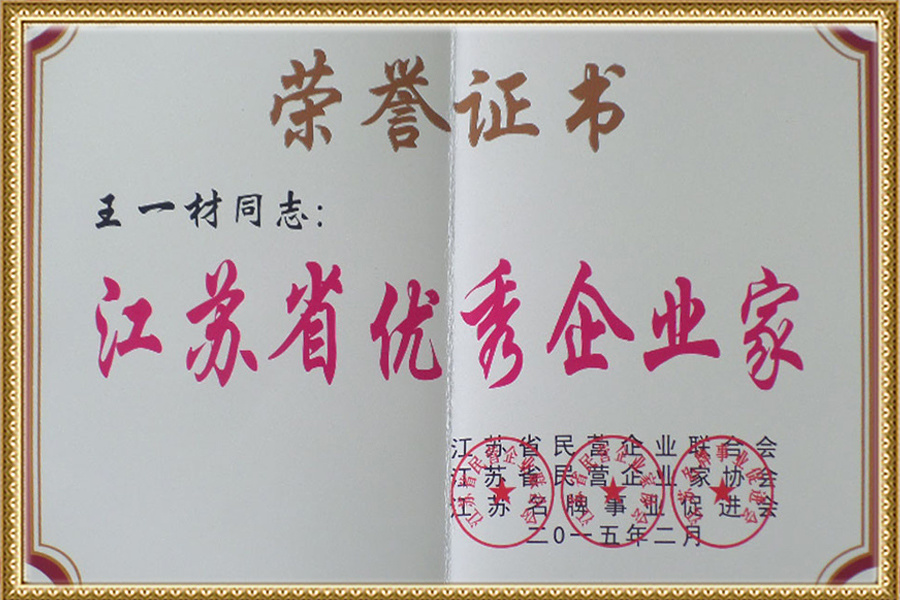 荣誉证书
王一材同志：
江苏省优秀企业家
江苏省民营企业联合会
江苏省民营企业家协会
江苏名牌事业促进会
二0一五年二月